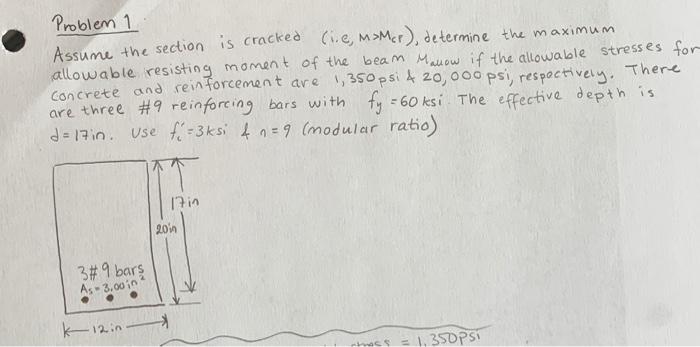 Problem 1
Assume the section is cracked (i.e, M>Mcr), determine the maximum
allowable resisting moment of the beam Mallow if the allowable stresses for
concrete and reinforcement are 1,350 psi & 20,000 psi, respectively. There
are three #9 reinforcing bars with fy = 60 ksi. The effective depth is
d = 17in. Use f'c = 3ksi & n = 9 (modular ratio)
17in
20in
3#9 bars
As = 3.00 in²
12 in
= 1,350psi